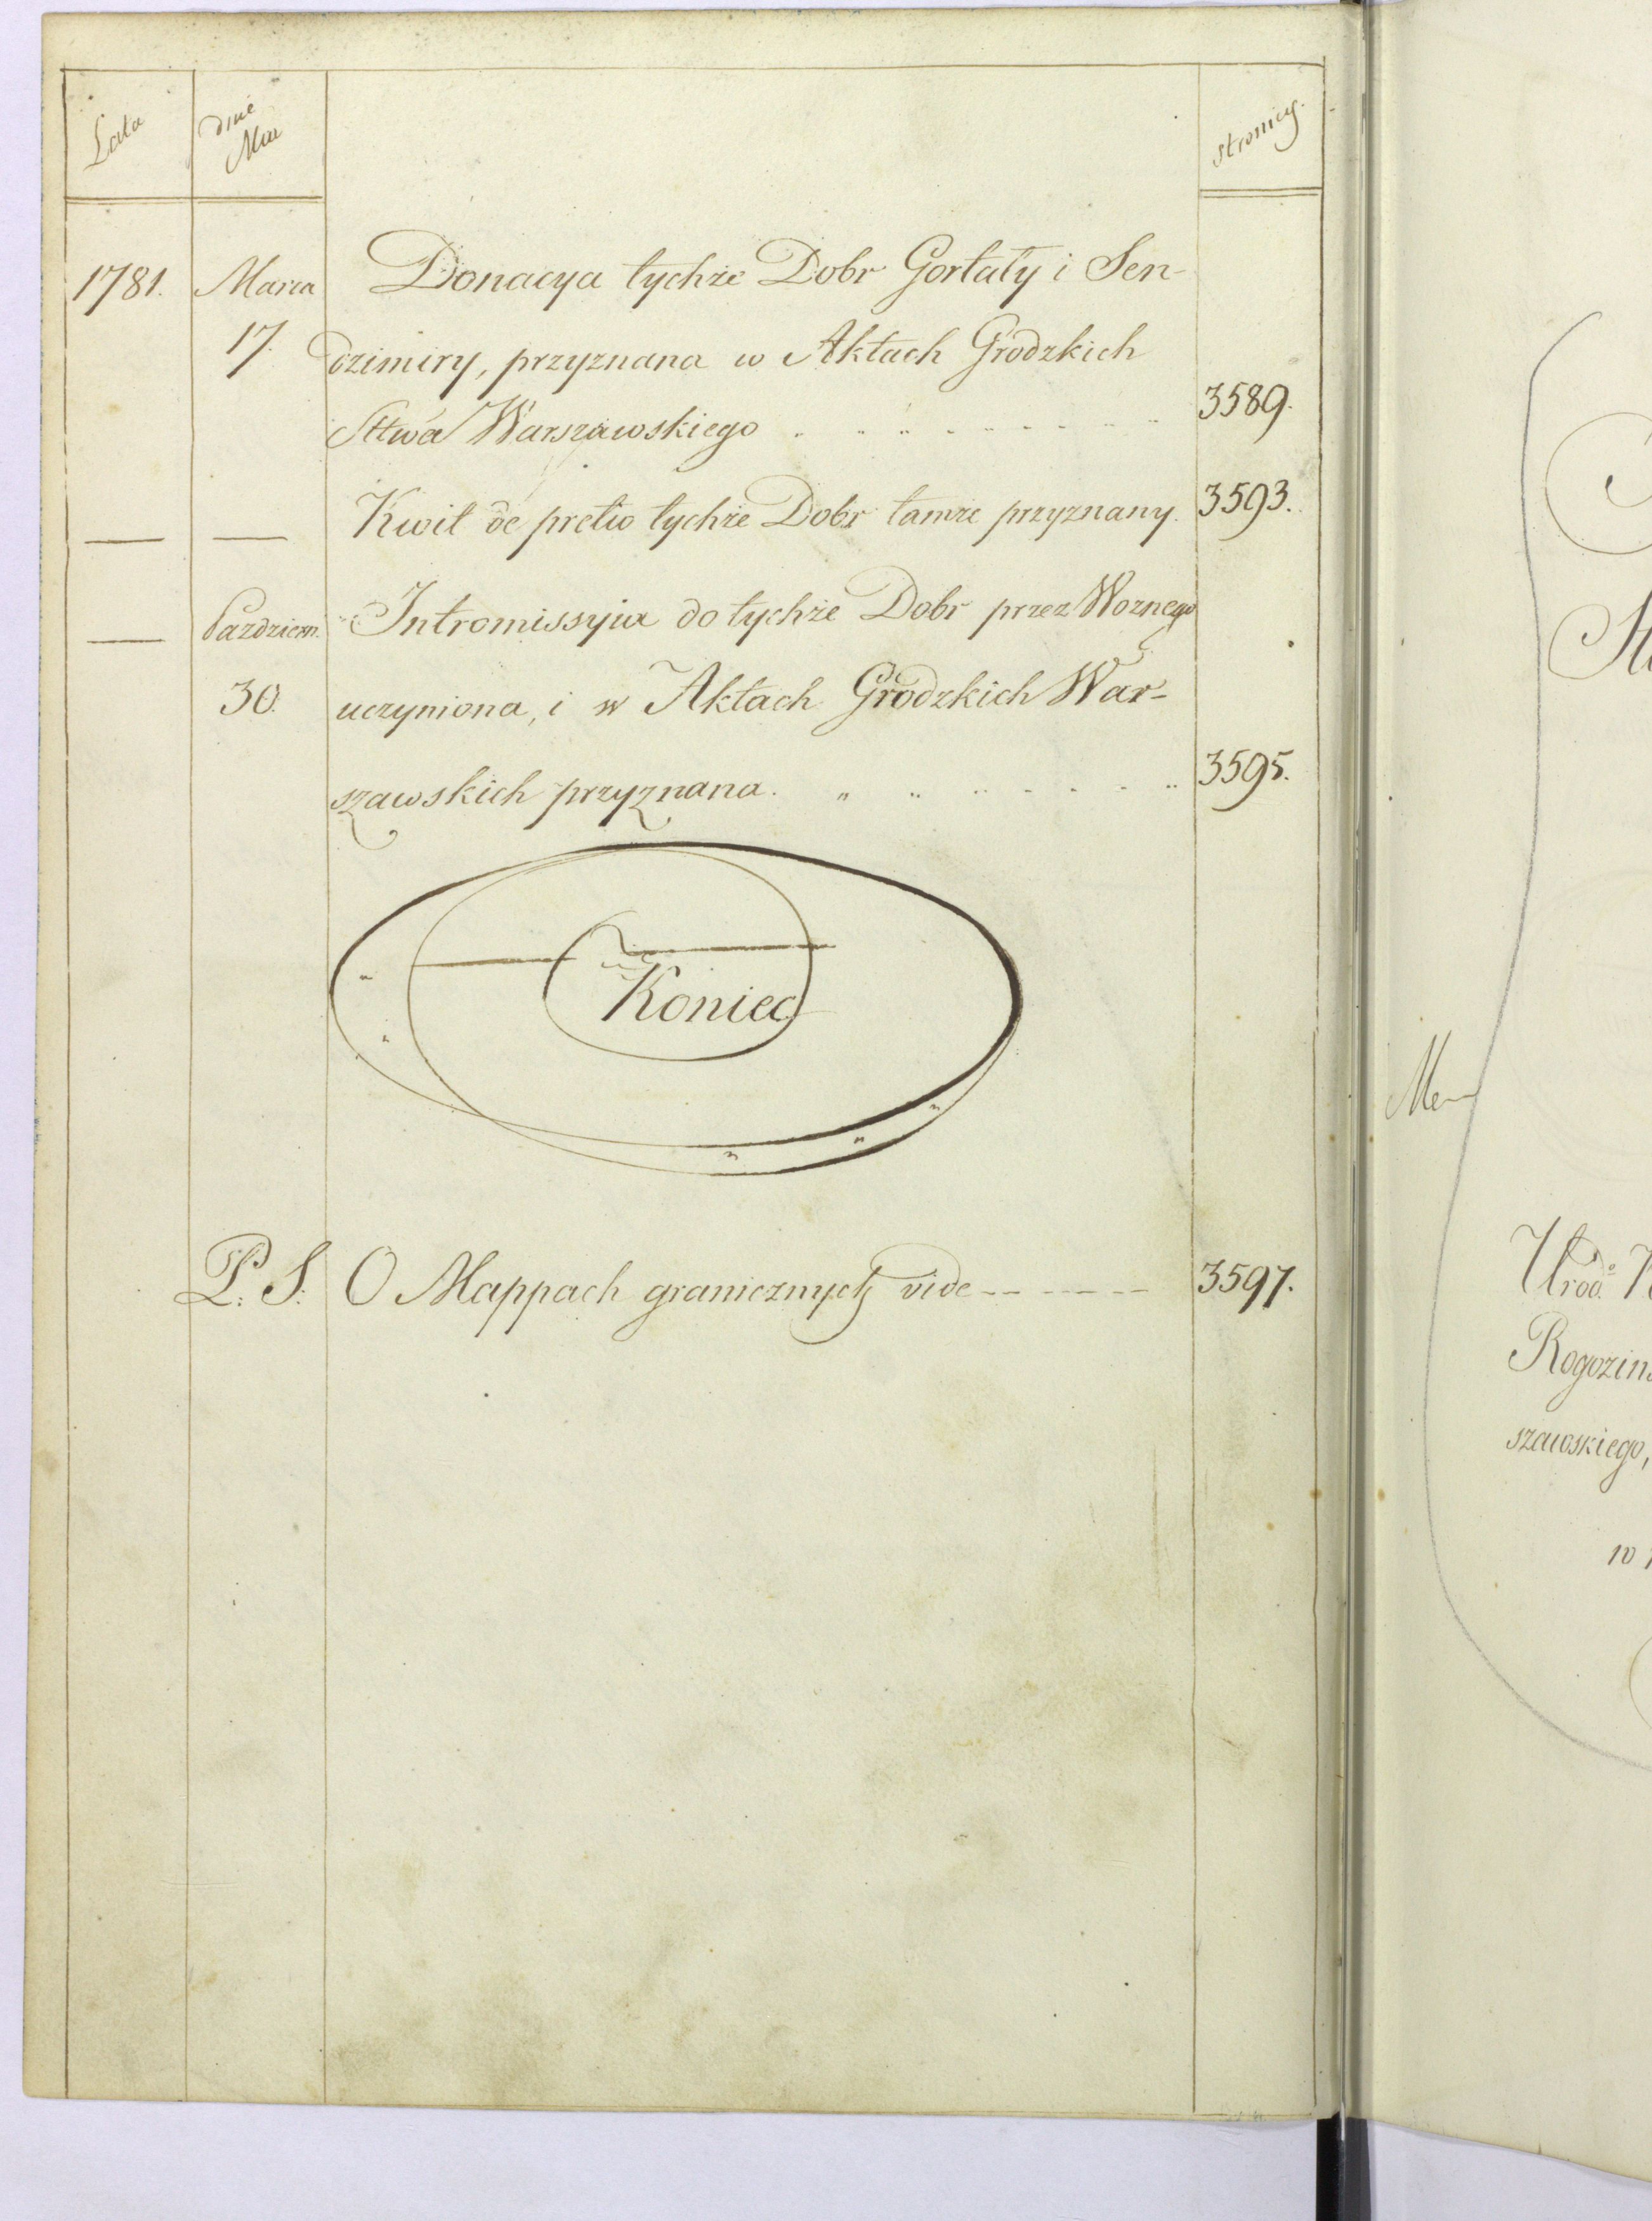 Lata dnie Mca stronicy.
1781. Marca Donacya tychże Dobr Gortaty i Sen-
17. dzimiry, przyznana w Aktach Grodzkich
Sttwa Warszawskiego 3589.
— — Kwit de pretio tychże Dobr tamże przyznany. 3593.
— Pazdziern. Intromissyia do tychże Dobr przez Woznego
30. uczyniona, i w Aktach Grodzkich War-
szawskich przyznana. 3595.
Koniec
P. S. O Mappach granicznych vide 3597.
Urod.
Rogozins
szawskiego,
w